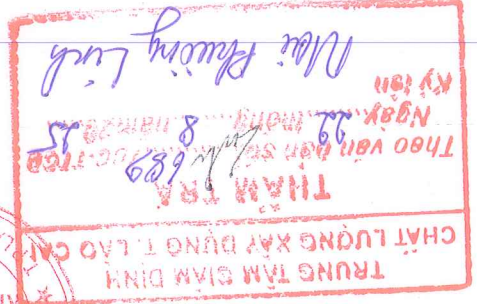 TRUNG TÂM GIÁM ĐỊNH
CHẤT LƯỢNG XÂY DỰNG T. LÀO CAI
THẨM TRA
Theo văn bản số 689
Ngày 22 tháng 8 năm 2025
Ký tên
Mai Phương Linh